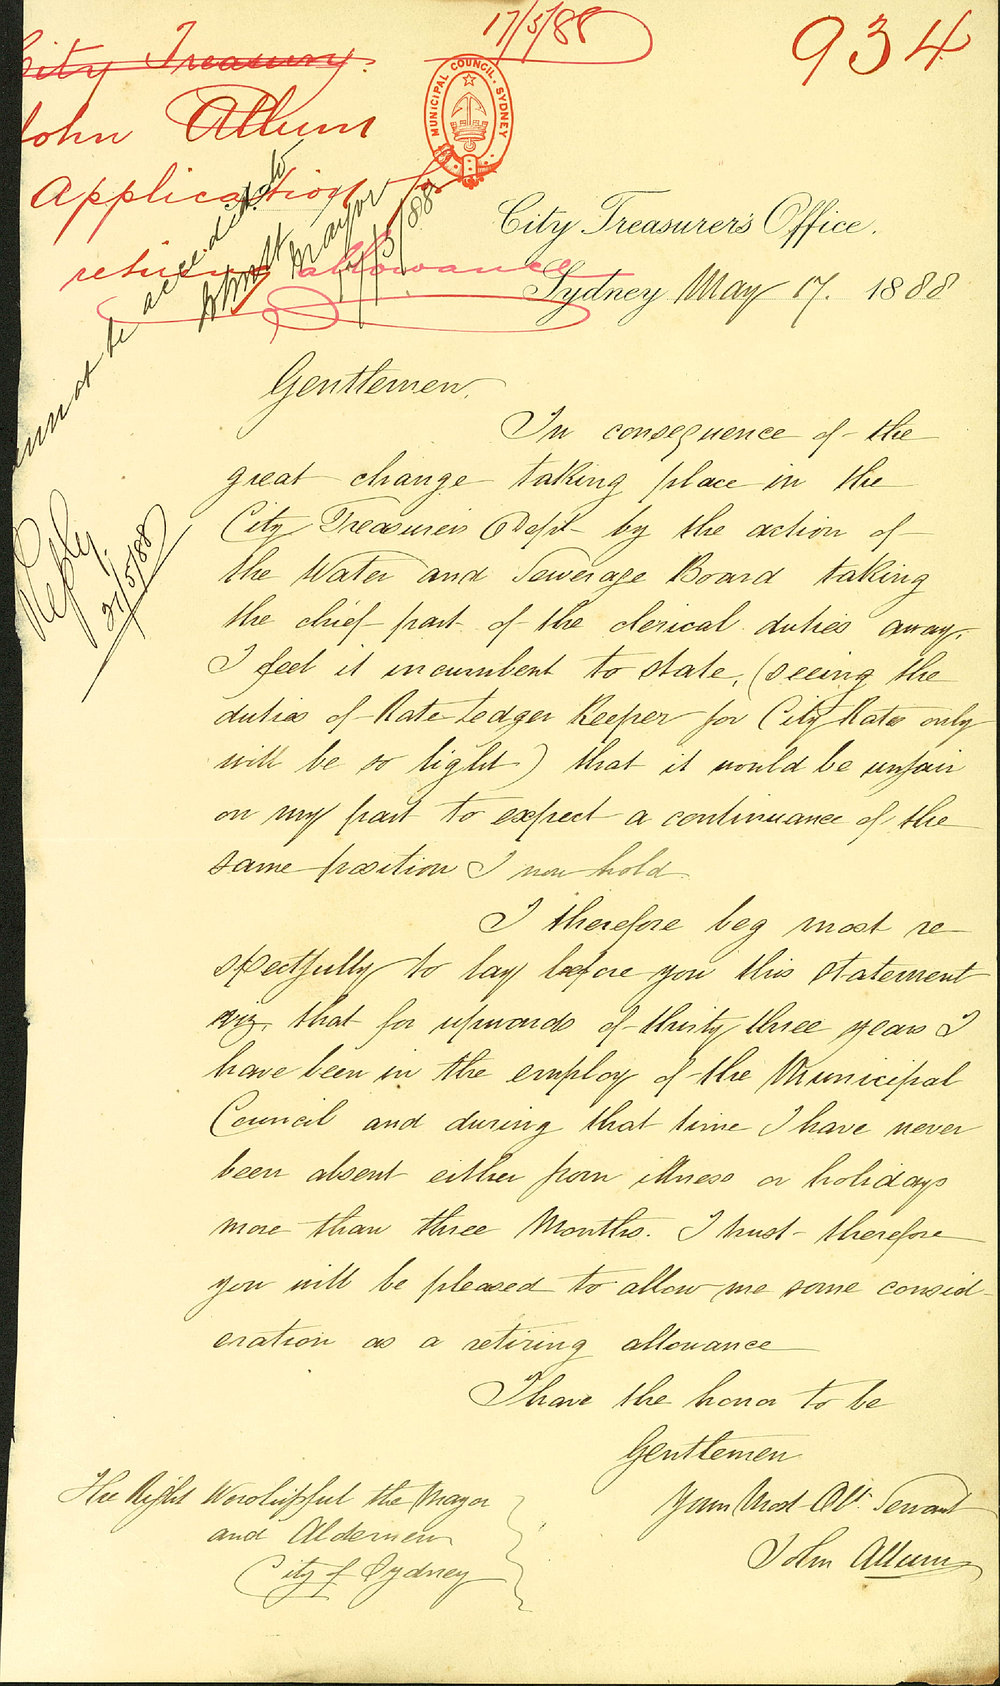 17/5/88
934
City Treasury.
John Allum
Application for
retiring allowance
MUNICIPAL COUNCIL. SYDNEY
cannot be acceded to
Mayor
17/5/88
Reply.
21/5/88
City Treasurer's Office.
Sydney May 17. 1888
Gentlemen,
In consequence of the
great change taking place in the
City Treasurers Dept by the action of
the Water and Sewerage Board taking
the chief part of the clerical duties away.
I feel it incumbent to state, (seeing the
duties of Rate Ledger Keeper for City Rates only
will be so light) that it would be unfair
on my part to expect a continuance of the
same position I now hold.
I therefore beg most re-
spectfully to lay before you this statement
viz. that for upwards of thirty three years I
have been in the employ of the Municipal
Council and during that time I have never
been absent either from illness or holidays
more than three Months. I trust therefore
you will be pleased to allow me some consid-
eration as a retiring allowance
I have the honor to be
Gentlemen
Your Most Obt. Servant
John Allum
The Right Worshipful the Mayor
and Aldermen
City of Sydney